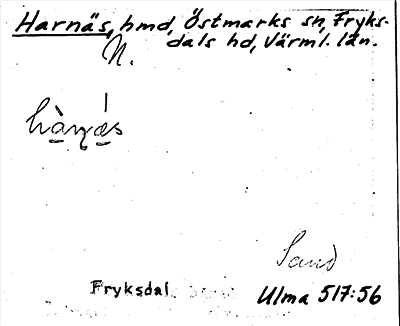 Harnäs, hmd, Östmarks sn, Fryks-
dals hd, Värml. län.
N.
Sand
Fryksdal
Ulma 517:56